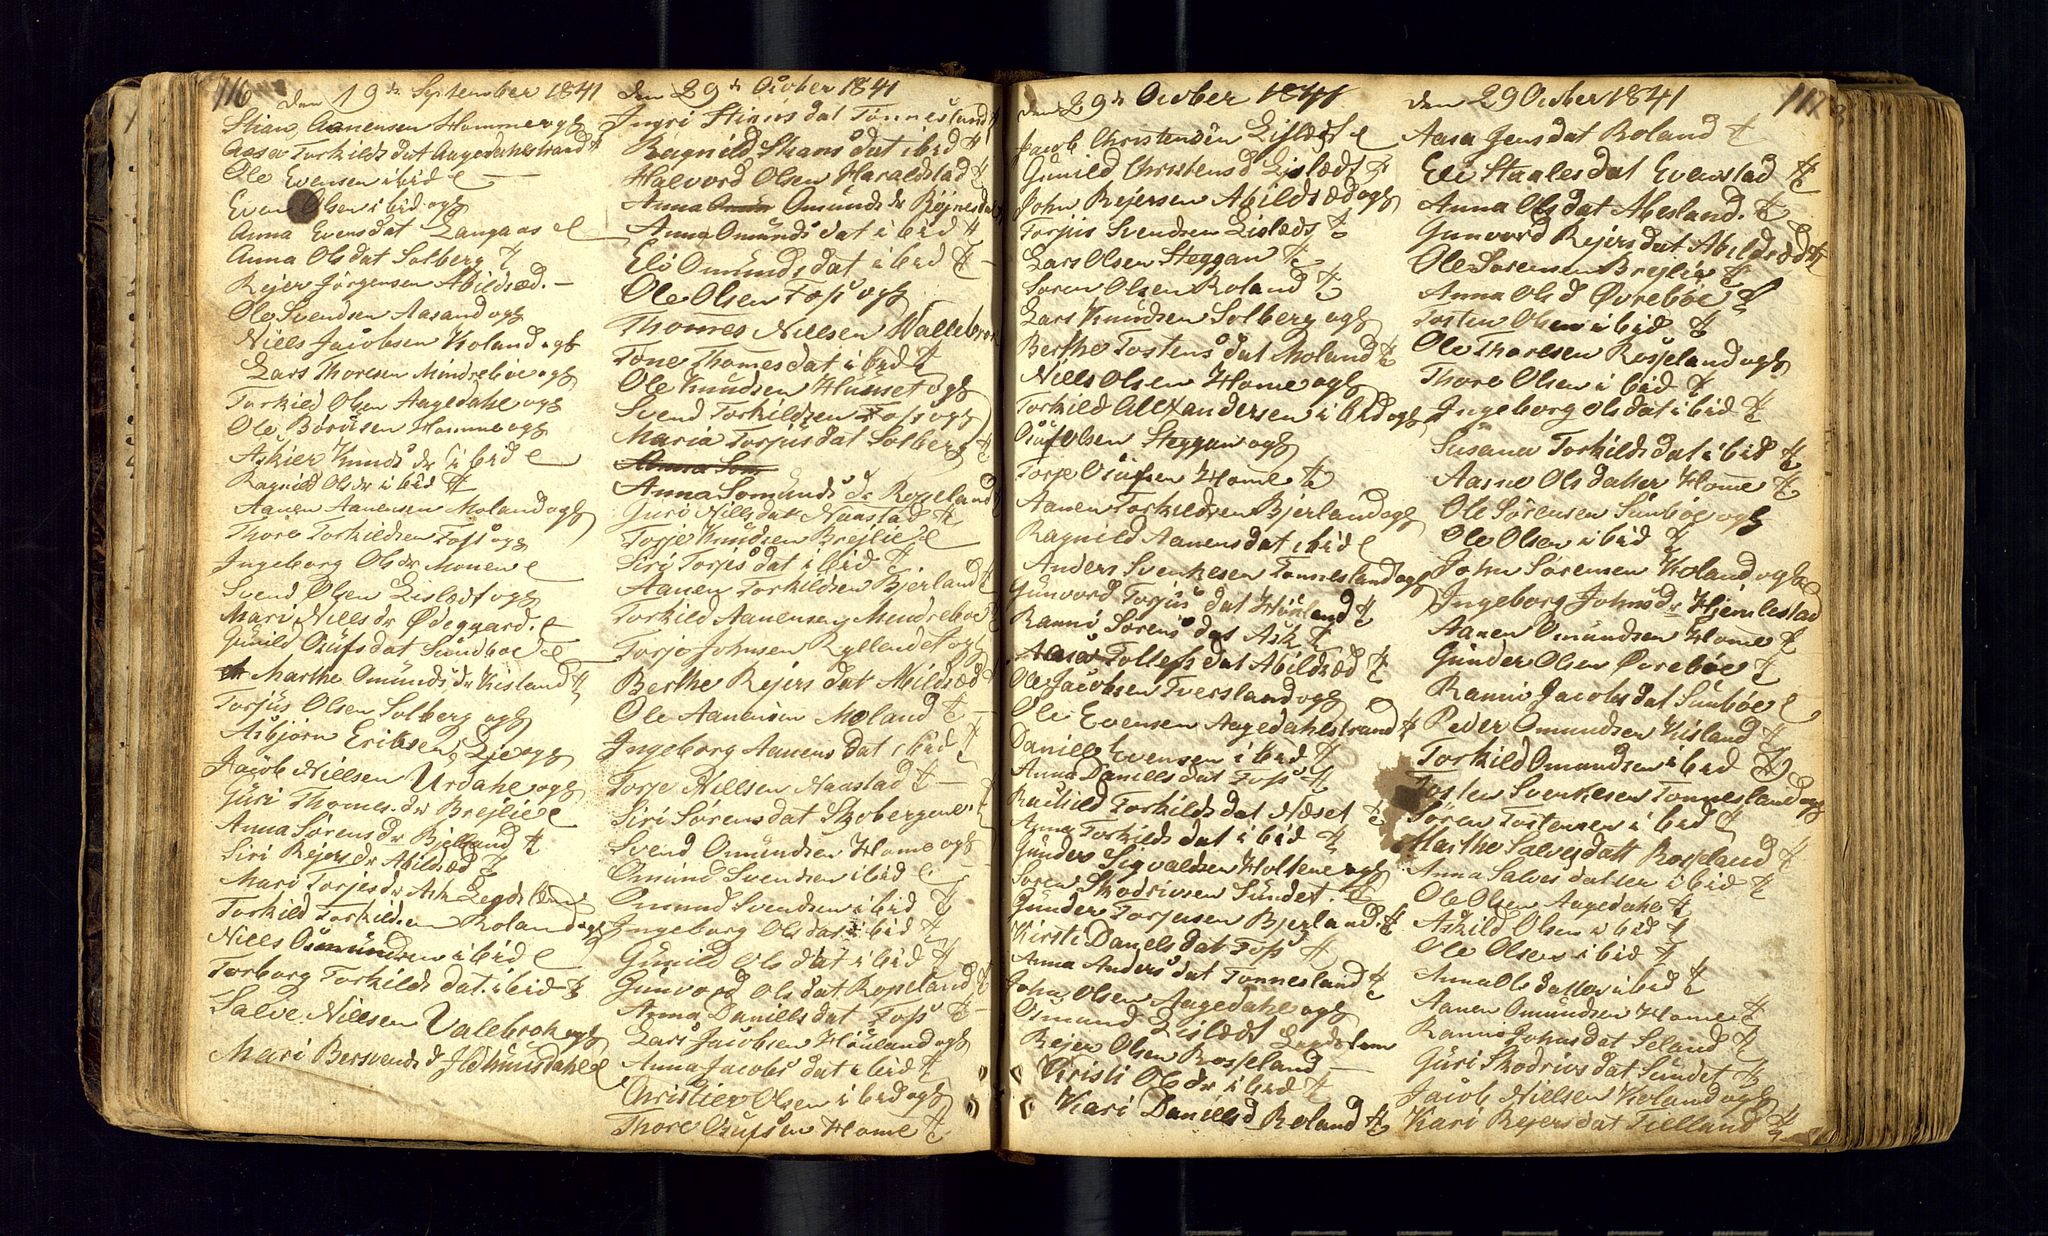 116
den 19de September 1841
Stian Aanensen Homme og g
Aasa Torkilds dat Aagedahlstrand
Ole Evensen ibid
Even Olsen ibid og g
Anna Evensdat Langaas
Anna Olsdat Solberg
Rejer Jørgensen Abildsæd. —
Ole Svendsen Aasand og g
Niels Jacobsen Koland og g
Lars Thoresen Mindreboe og g
Torkild Olsen Aagedahl og g
Ole Homme og g
Knuds dr ibid
Ragnild Ols dr ibid
Aanen Aanensen Moland og g
Thore Torkildsen Foss og g
Ingeborg Ols dr Monen
Svend Olsen Lislæt og g
Mari Niels dr Ødeggard.
Gunild Olufs dat Sundboe
Marthe Omunds dr Kisland
Torjus Olsen Solberg og g
Asbjørn Eriksen Lie og g
Jacob Nielsen Urdahl og g
Guri Thomes dr Brejlie
Anna Sørens dr Bjelland
Siri Rejers dr Abildsæd
Mari Torjes dr Ask Legdslem
Torkild Torkildsen Roland og g
Niels Osmundsen ibid
Torborg Torkilds dat ibid
Salve Nielsen Valebrok og g
Mari Bersvends d
den 29de October 1841
Ingri Stians dat Tonnesland
Ragnild Stians dat ibid
Halvord Olsen Haraldstad
Anna Omunds dr Røjnesdal
Anna Omunds dat ibid
Eli Omunds dat ibid
Ole Olsen Foss og g
Thomes Nielsen Wallebrok
Tone Thomesdat ibid
Ole Knudsen Hunset og g
Svend Torkildsen Foss og g
Maria Torjus dat Solberg
Anna Som
Anna Somunds dr Rosseland
Guri Niels dat Naastad
Torje Knudsen Brejlie
Siri Torjes dat ibid
Aanen Torkildsen Bjerland
Torkild Aanensen Mindreboe
Torjo Johnsen Ryllandet og g
Berthe Rejers dat Abildsæd
Ole Aanensen Moland
Ingeborg Aanens dat ibid
Torje Nielsen Naastad
Siri Sørens dat Skobergene
Svend Omundsen Home og g
Omund Svendsen ibid
Omund Svendsen ibid
Ingeborg Olsdat ibid
Gunild Ols dat ibid
Gunvord Ols dat Rosseland
Anna Daniels dat Foss
Lars Jacobsen Houland og g
Anna Jacobs dat ibid
Christier Olsen ibid og g
Thore Olufsen Home
den 29de October 1841
Jacob Christensen Lislæt
Gunild Christensd Lislædt
John Rejersen Abildsæd og g
Torjus Svendsen Lislæds
Lars Olsen Steggan
Soren Olsen Roland
Lars Knudsen Solberg og g
Berthe Tostens dat Moland
Niels Olsen Home og g
Torkild Allexandersen ibid og g
Oluf Olsen Steggan og g
Torje Olufsen Home
Aanen Torkildsen Bjerland og g
Ragnild Aanens dat ibid
Anders Svenkesen Tonnesland og g
Gunvord Torjus dat Houland
Ranni Sørens dat Ask
Aasa Tollefs dat Abildsæd
Ole Jacobsen Tversland og g
Ole Evensen Aagedahlstrand
Daniels Evensen ibid
Anna Daniels dat Foss
Rachild Torkilds dat Næset
Anna Torkilds dat ibid
Gunders Sigvaldsen Holtene og g
Soren Skodriosen Sundet.
Gunder Torjusen Bjerland
Kirsti Daniels dat Foss
Anna Anders dat Tonnesland
John Olsen Aagedahl og g
Osmund Lislædt Legdslem
Rejer Olsen Rosseland —
Kristi Ols dr ibid
Kari Daniels d Roland
117
den 29 October 1841
Aasa Jens dat Roland
Eli Staales dat Evenstad
Anna Ols dat Abesland.
Gunvord Rejers dat Abildsæd
Ole Sorensen Brejlie
Anna Ols d Øvrebøe
Tosten Olsen ibid
Ole Thorlsen Rosseland og g
Thore Olsen ibid
Ingeborg Ols dat ibid
Susana Torkilds dat ibid
Aasne Ols datter Home
Ole Sørensen Sunboe og g
Ole Olsen ibid
John Sorensen Koland og g
Ingeborg Johns dr Hjemlestad
Aanen Omundsen Home
Gunder Olsen Øvrebøe
Ranni Jacobs dat Sunbøe
Peder Omundsen Kisland
Torkild Omundsen ibid
Tosten Svenkesen Tonnesland og g
Søren Tostensen ibid
Marthe Salves datt Rosseland
Anna Salves datter ibid
Ole Olsen Aagedahl
Askild Olsen ibid
Ole Olsen ibid
Anna Ols datter ibid
Aanen Omundsen Home
Ranne Johns dat Seland
Guri Skodrios dat Sundet
Jacob Nielsen Koland og g
Kari Rejers dat Fielland